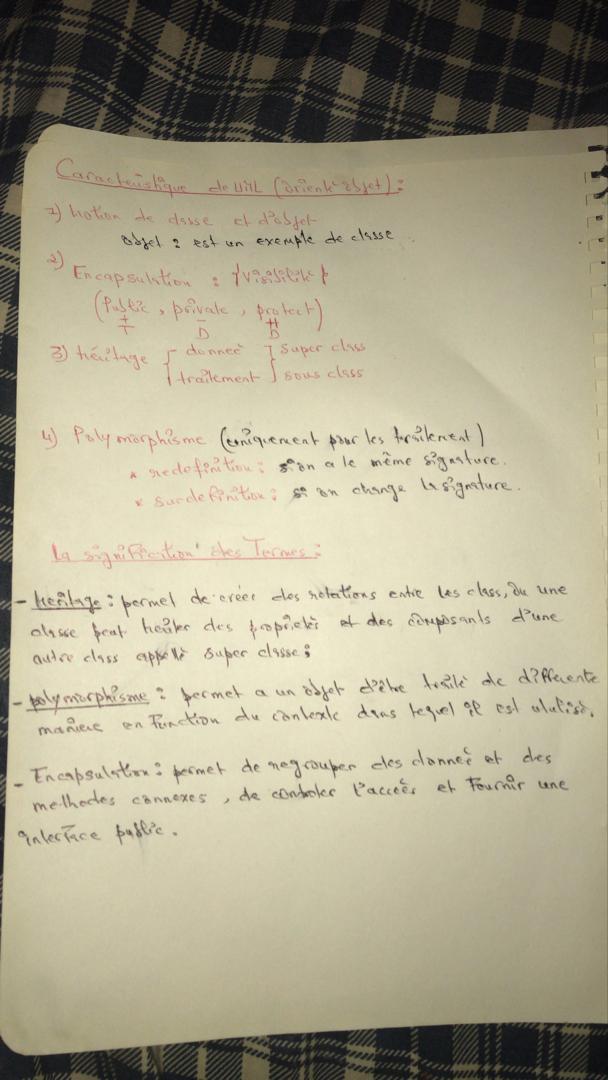 Caracteristique de UML (orienté objet) :
1) Notion de classe et d'objet
objet : est un exemple de classe
2)
Encapsulation : {visibilité}
(Public, private, protect)
+ - #
3) héritage { donneé } super class
{ traitement } sous class
4) Polymorphisme (uniquement pour les traitement)
* redefinition : si on a le même signature.
* surdefinition : si on change la signature.
La signification des Termes :
- heritage : permet de créer des relations entre les class, ou une
classe peut hériter des propriétés et des composants d'une
autre class appellé super classe ;
- polymorphisme : permet a un objet d'être traité de différente
manière en Function du contexte dans lequel il est utulisé.
- Encapsulation : permet de regrouper des donneé et des
methodes connexes, de controler l'accées et Fournir une
interface public.